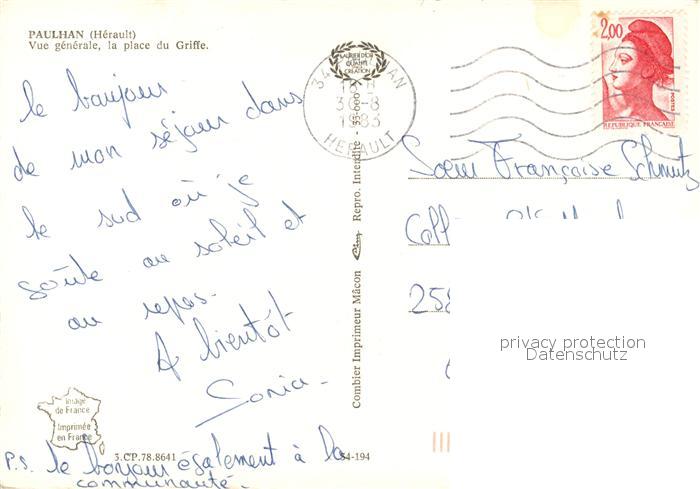 PAULHAN (Hérault)
Vue générale, la place du Griffe.
le bonjour
de mon séjour dans
le sud où je
goûte au soleil et
au repos.
A bientôt
Sonia
P.S. le bonjour également à la
communauté.
Image
de France
Imprimée
en France
3.CP.78.8641
34-194
Combier Imprimeur Mâcon
Repro. Interdite
QUALITÉ
CRÉATION
30-8
1983
HERAULT
2,00
POSTES
REPUBLIQUE FRANÇAISE
Sœur Françoise Schmutz
privacy protection
Datenschutz